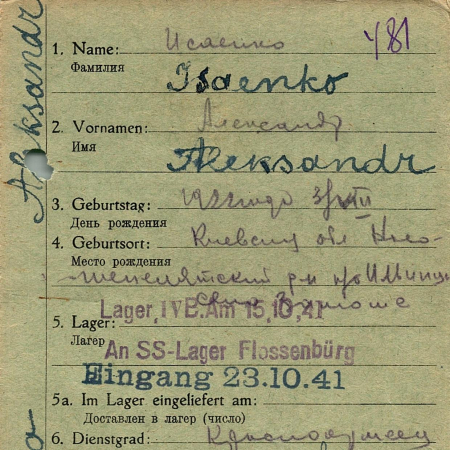 Aleksandr
481
1. Name: Исаенко
Фамилия
Isaenko
2. Vornamen: Александр
Имя
Aleksandr
3. Geburtstag:
День рождения
4. Geburtsort: Киевская обл
Место рождения
Lager, IV B. Am 15,10,41
5. Lager:
Лагерь
An SS-Lager Flossenbürg
Eingang 23.10.41
5a. Im Lager eingeliefert am:
Доставлен в лагер (число)
6. Dienstgrad: Красноармеец